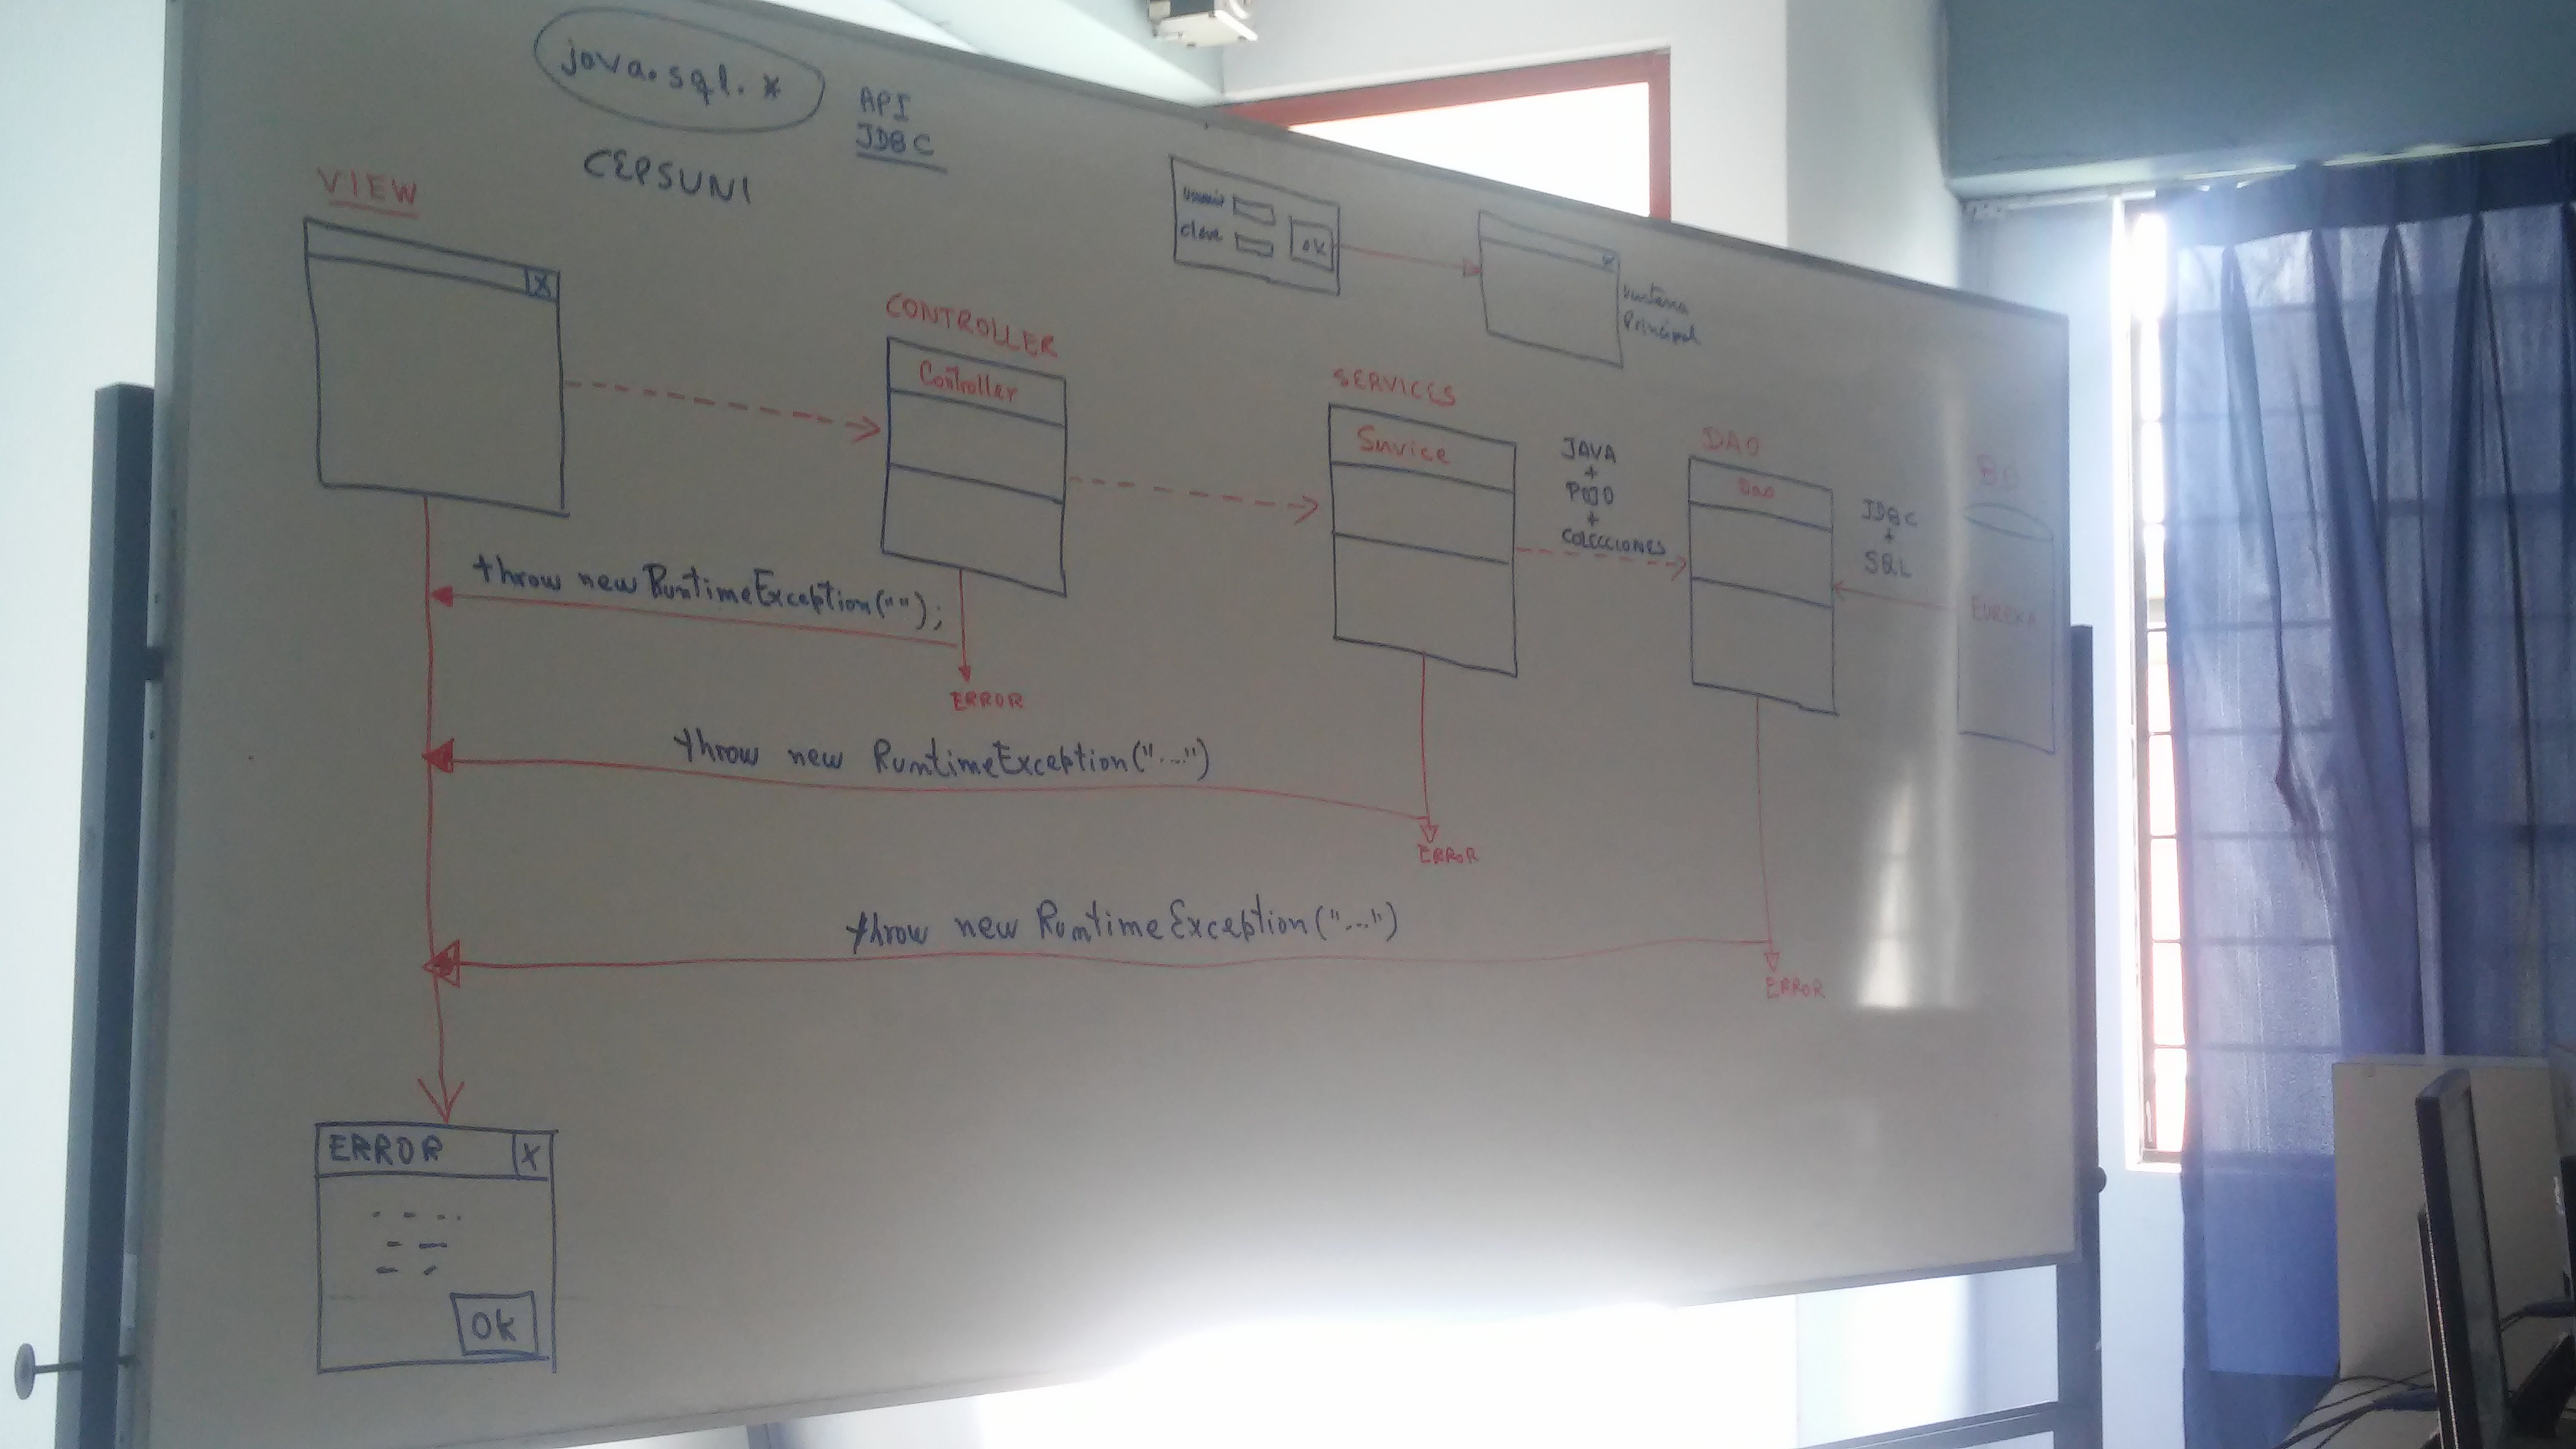 java.sql.*
API
JDBC
CEPSUNI
VIEW
X
usuario
clave
OK
x
Ventana
Principal
CONTROLLER
Controller
SERVICES
Service
JAVA
+
POJO
+
COLECCIONES
DAO
Dao
JDBC
+
SQL
BD
EUREKA
throw new RuntimeException("");
ERROR
throw new RuntimeException("...")
ERROR
throw new RuntimeException("...")
ERROR
ERROR X
OK